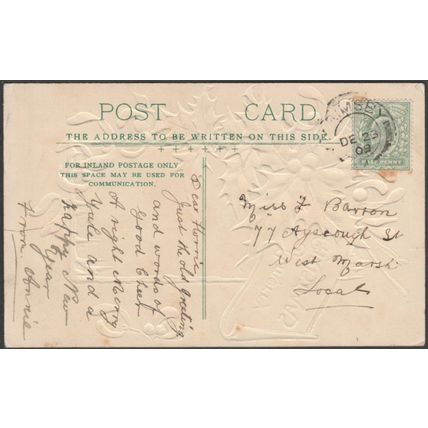 POST CARD.
THE ADDRESS TO BE WRITTEN ON THIS SIDE.
FOR INLAND POSTAGE ONLY
THIS SPACE MAY BE USED FOR
COMMUNICATION.
Dear
Just the old greeting
and words of
Good Cheer
A right Merry
Yule and a
Happy New
Year
From Annie
Miss F Barton
77 Ayscough St
West Marsh
Local
GRIMSBY
DE 23
09
HALFPENNY